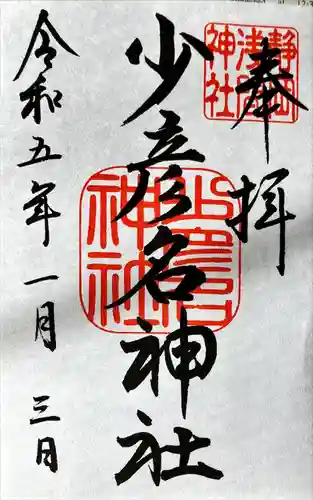 奉拝
少彦名神社
令和五年一月三日
静岡浅間神社